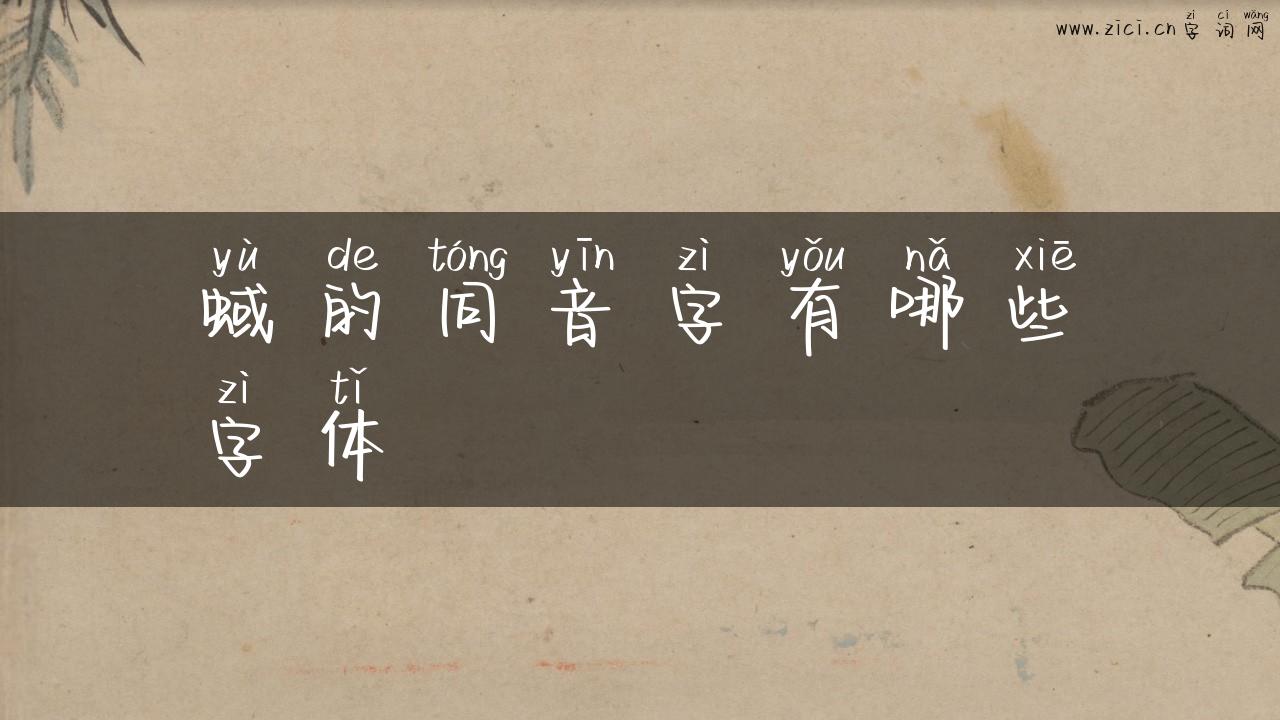 zì cí wǎng
www.zici.cn 字 词 网
yù de tóng yīn zì yǒu nǎ xiē
蜮 的 同 音 字 有 哪 些
zì tǐ
字 体